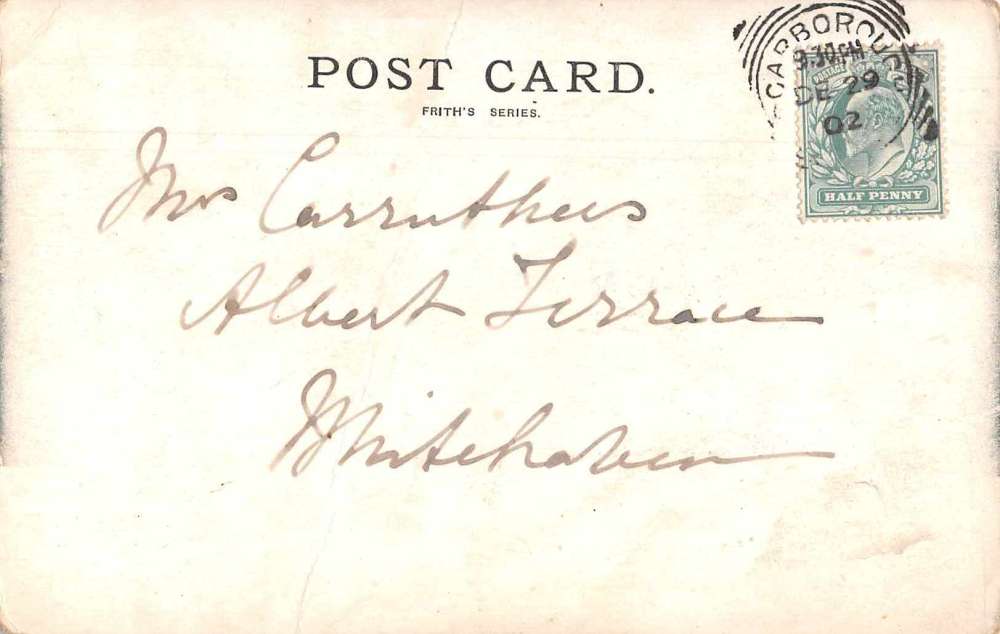 POST CARD.
FRITH'S SERIES.
SCARBOROUGH
9.30PM
DE 29
02
POSTAGE
HALF PENNY
Mrs Carruthers
Albert Terrace
Whitehaven